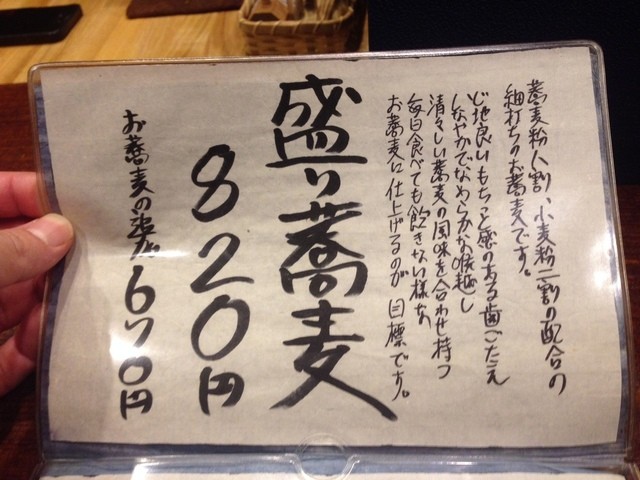 蕎麦粉八割、小麦粉二割の配合の
細打ちのお蕎麦です。
心地良いもちっと感のある歯ごたえ
しなやかでなめらかな喉越し
清々しい蕎麦の風味を合わせ持つ
毎日食べても飽きない様な
お蕎麦に仕上げるのが 目標です。
盛り蕎麦
820円
お蕎麦の追加 670円